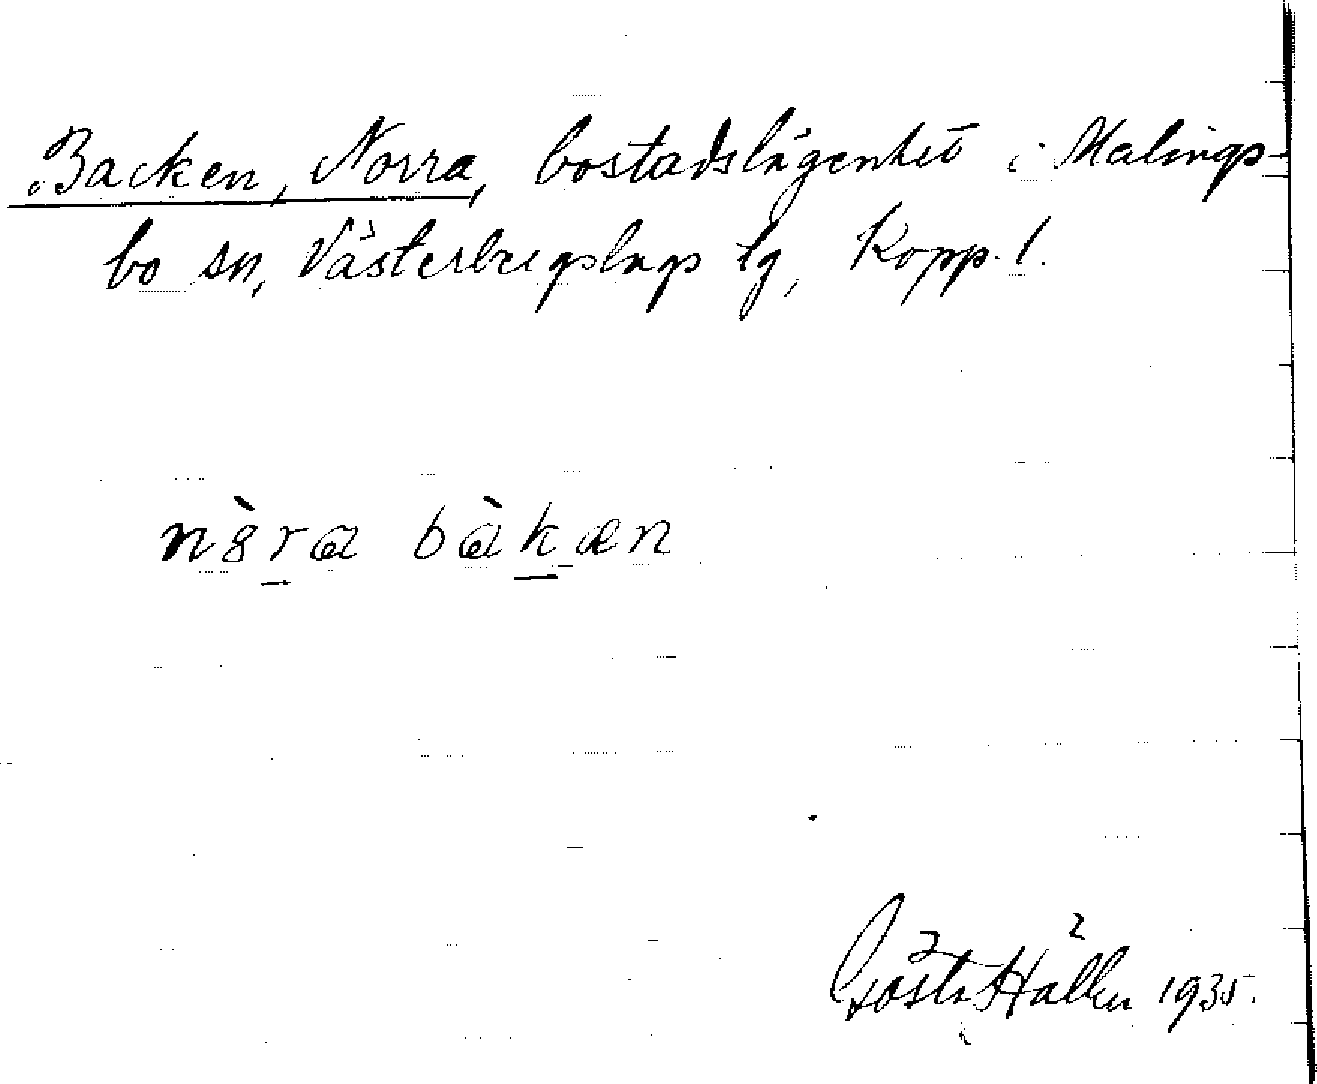 Backen, Norra, bostadslägenhet i Malings-
bo sn, Västerbergslags tg, Kopp. l.
nòra bàkæn
Gösta Hallén 1935.